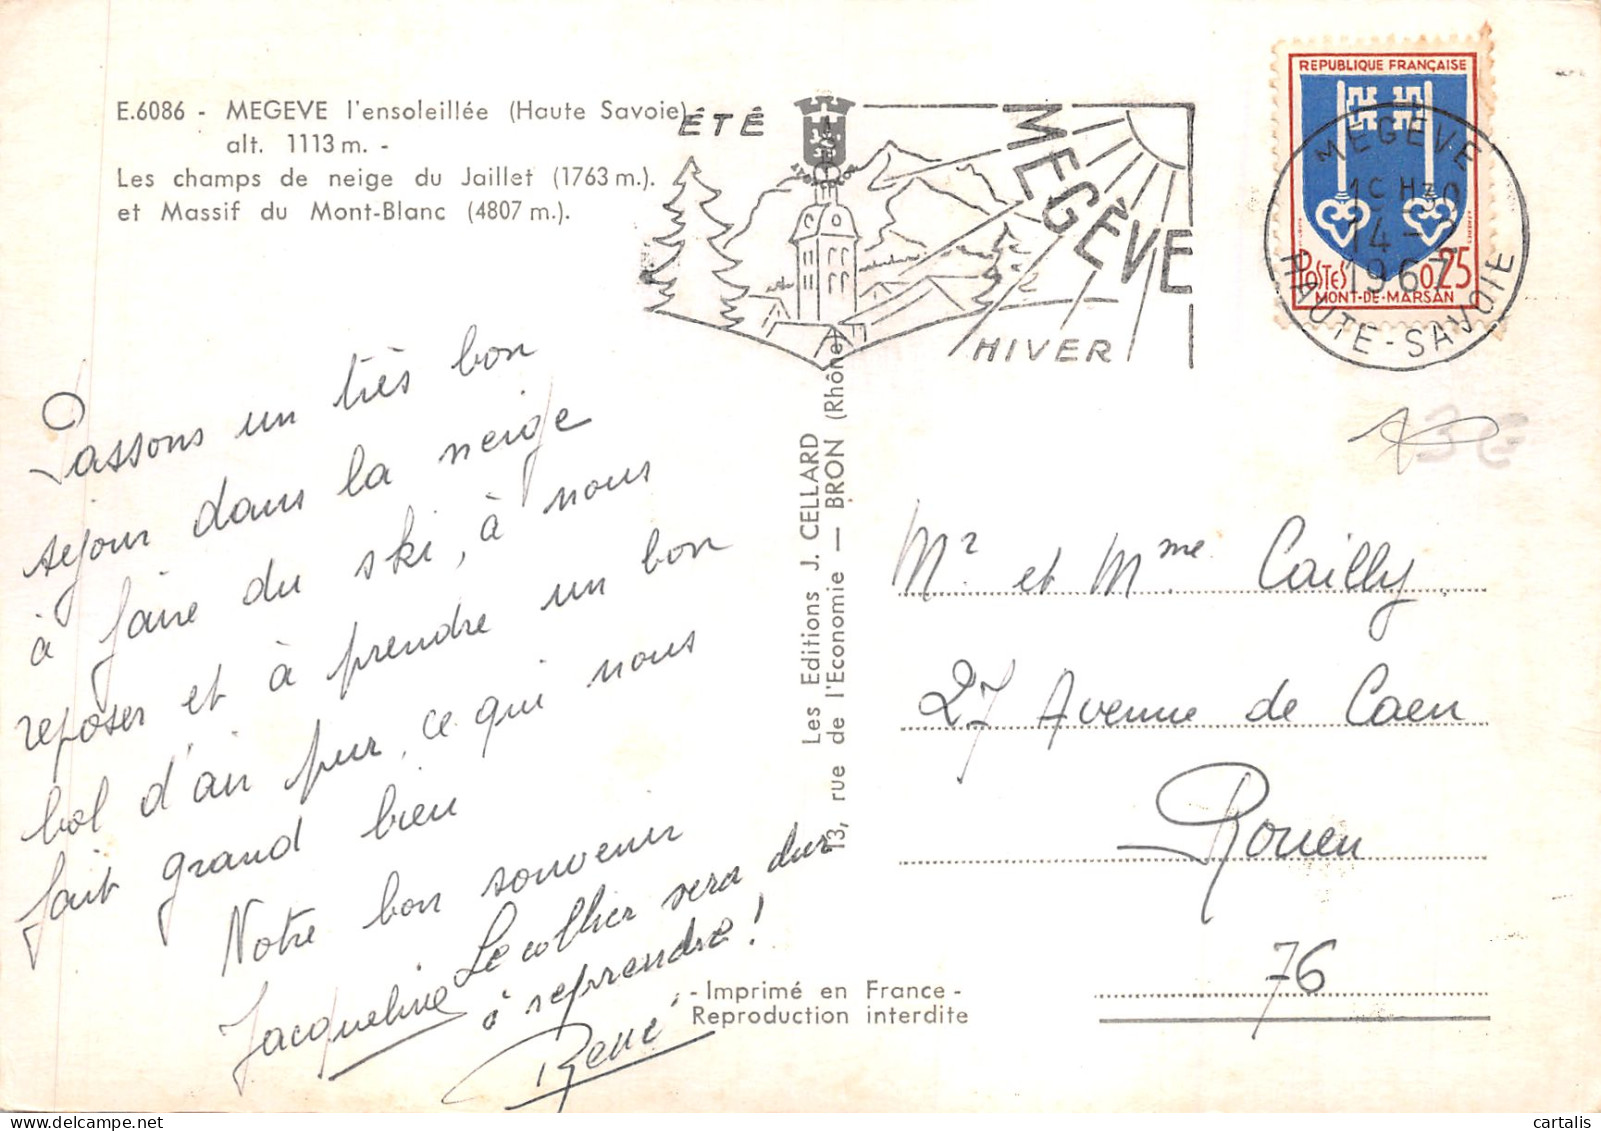 E.6086 - MEGEVE l'ensoleillée (Haute Savoie)
alt. 1113 m. -
Les champs de neige du Jaillet (1763 m.).
et Massif du Mont-Blanc (4807 m.).
ÉTÉ
MEGÈVE
HIVER
REPUBLIQUE FRANÇAISE
POSTES 0,25
MONT-DE-MARSAN
MEGÈVE
14 -
1967
HAUTE-SAVOIE
Passons un très bon
séjour dans la neige
à faire du ski, à nous
reposer et à prendre un bon
bol d'air pur, ce qui nous
fait grand bien
Notre bon souvenir
Jacqueline
Le collier sera dur
à reprendre !
René
Les Editions J. CELLARD
13, rue de l'Economie — BRON (Rhône)
Mr. et Mme. Cailly
27 Avenue de Caen
Rouen
76
- Imprimé en France -
Reproduction interdite
cartalis
www.delcampe.net